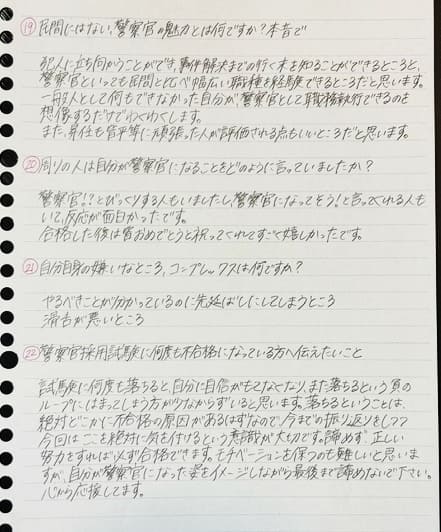 ⑲民間にはない、警察官の魅力とは何ですか？本音で
犯人に立ち向かうことができ、事件解決までの行く末を知ることができるところと、
警察官といっても民間と比べ幅広い職種を経験できるところだと思います。
一般人として何もできなかった自分が、警察官として職務執行できるのを
想像するだけでわくわくします。
また、昇任も皆平等に頑張った人が評価される点もいいところだと思います。
⑳周りの人は自分が警察官になることをどのように言っていましたか？
警察官！？とびっくりする人もいましたし、警察官になってそう！と言ってくれる人も
いて、反応が面白かったです。
合格した後は皆おめでとうと祝ってくれてすごく嬉しかったです。
㉑自分自身の嫌いなところ、コンプレックスは何ですか？
やるべきことが分かっているのに先延ばしにしてしまうところ
滑舌が悪いところ
㉒警察官採用試験に何度も不合格になっている方へ伝えたいこと
試験に何度も落ちると、自分に自信がもてなくなり、また落ちるという負の
ループにはまってしまう方が少なからずいると思います。落ちるということは、
絶対どこかに不合格の原因があるはずなので、今までの振り返りをしつつ
今回はここを絶対に気を付けるという意識が大切です。諦めず、正しい
努力をすれば必ず合格できます。モチベーションを保つのも難しいと思いま
すが、自分が警察官になった姿をイメージしながら最後まで諦めないで下さい。
心から応援してます。